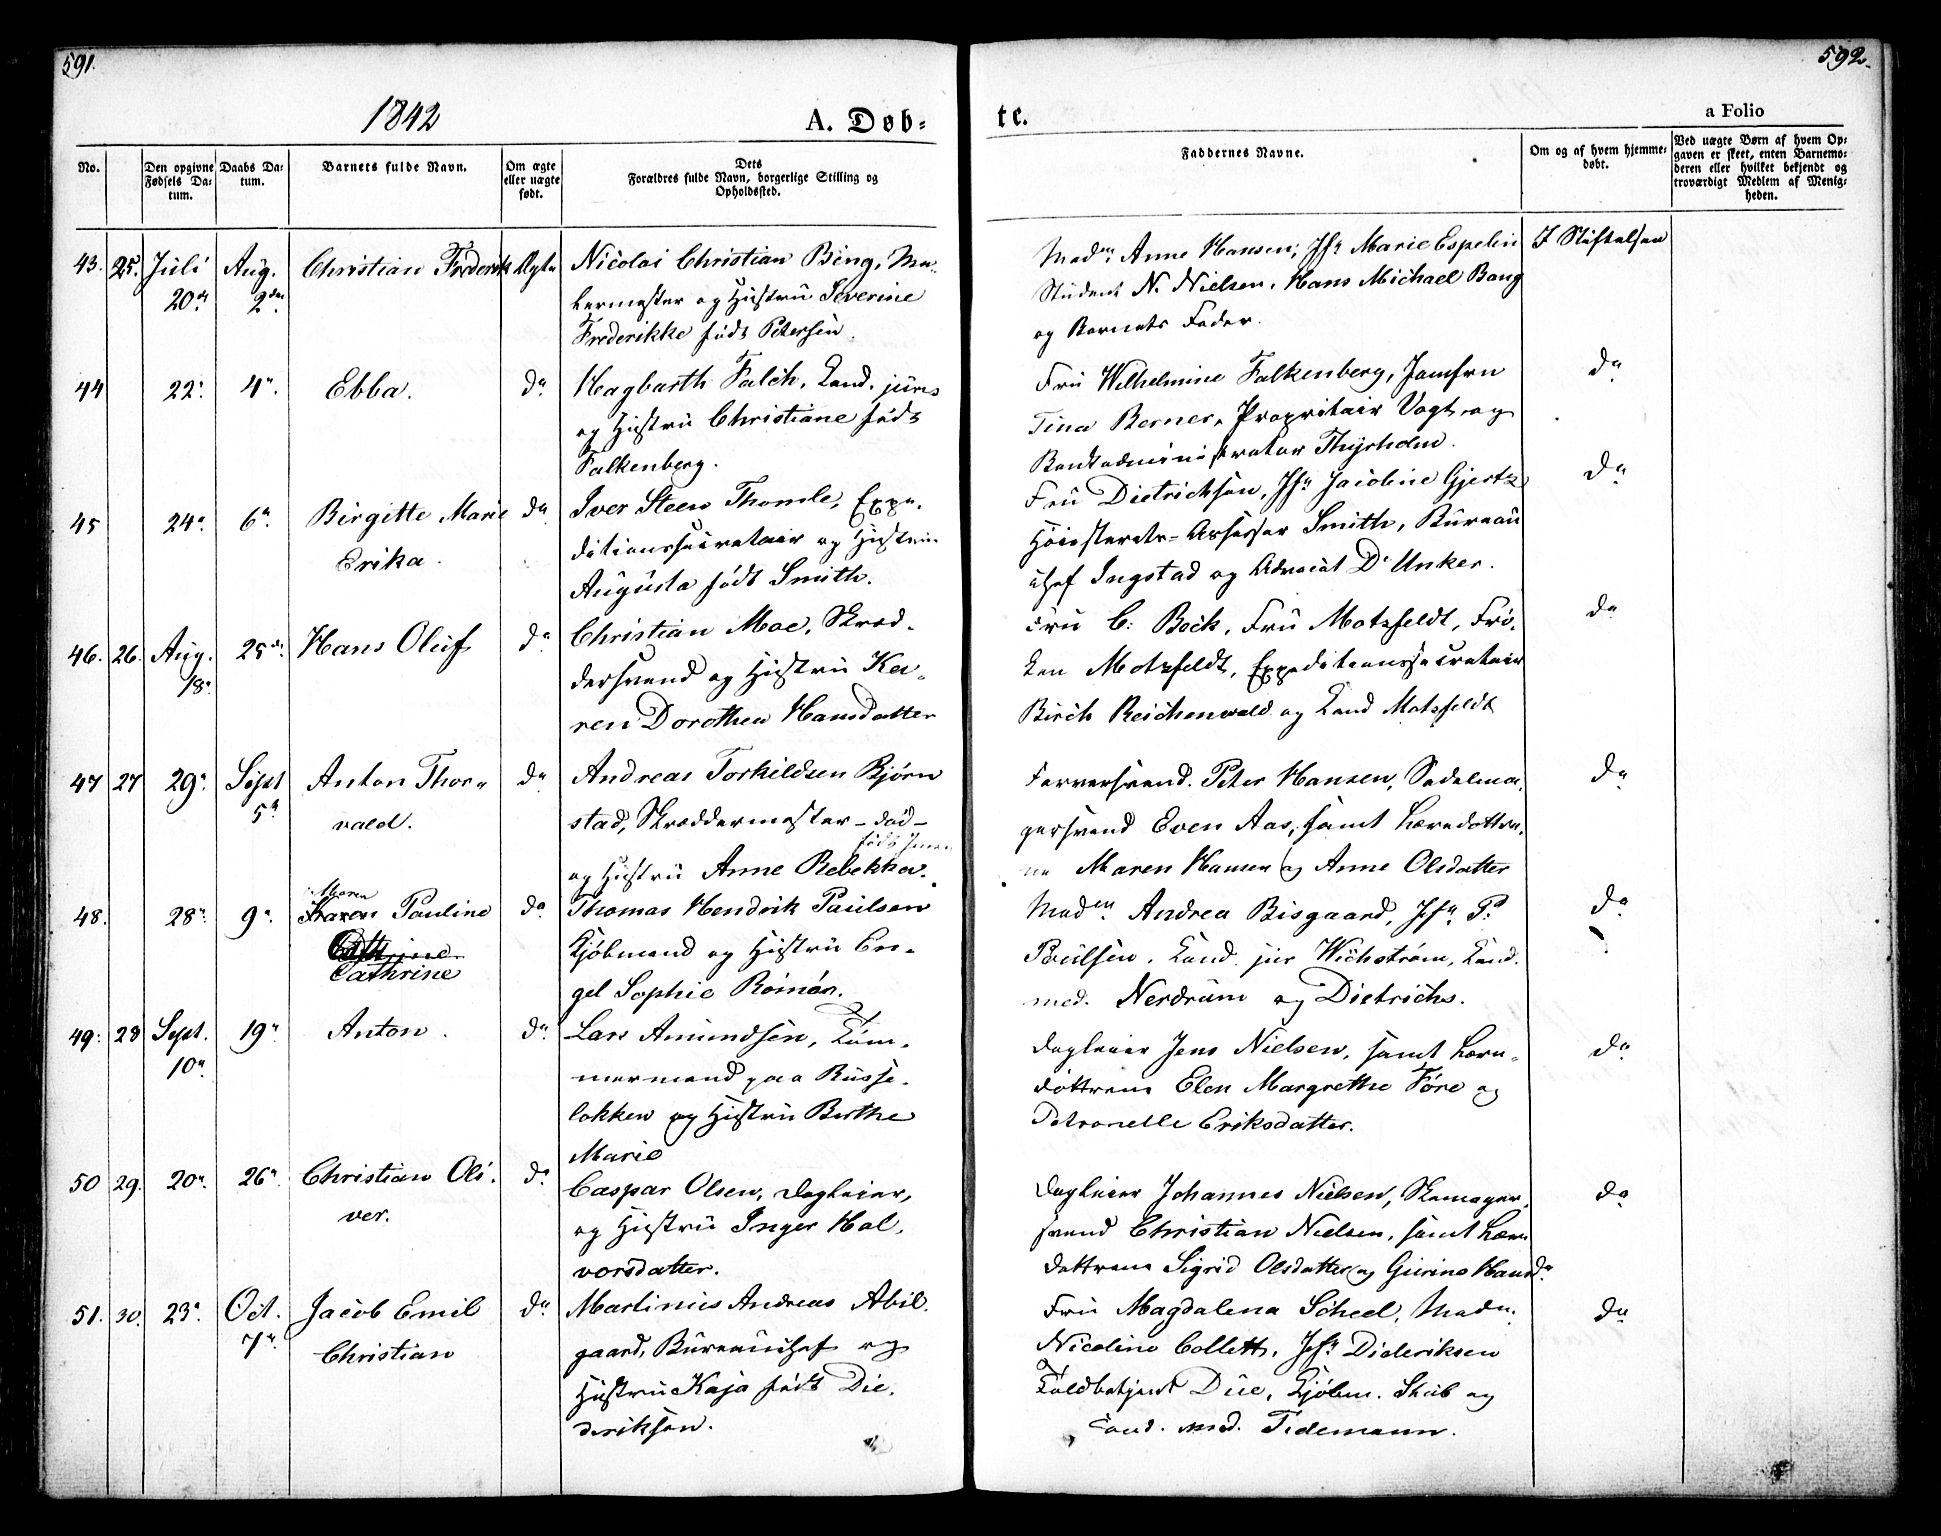 591.
592.
1842
A. Døb-
te.
a Folio
No.
Den opgivne Fødsels Da-
tum.
Daabs Da-
tum.
Barnets fulde Navn.
Om ægte
eller uægte
født.
Dets
Forældres fulde Navn, borgerlige Stilling og
Opholdssted.
Faddernes Navne.
Om og af hvem hjemme-
døbt.
Ved uægte Børn af hvem Op-
gaven er skeet, enten Barnemo-
deren eller hvilket bekjendt og
troværdigt Medlem af Menig-
heden.
43. 25. Juli Aug. Christian Frederik Ægte Nicolai Christian Bing, Ma-
20de 2den
kermester og Hustru Severine
Frederikke født Petersen.
Madm Anne Hansen, Jfr Marie Espelin I Stiftelsen
Student N. Nielsen, Hans Michael Bang
og Barnets Fader.
44 22. 4. Ebba. do Hagbarth Falch, Cand. juris
og Hustru Christiane født
Falkenberg.
Fru Wilhelmine Falkenberg, Jomfru do
Tina Berner, Propritair Vogt og
Bankadministrator Thysholm.
45 24. 6. Birgitte Marie do Iver Steen Thomle, Expe-
Erika. ditionssecretair og Hustru
Augusta født Smith.
Fru Dietrichson, Jfr Jacobine Gjertz do
Høiesterets-Assessor Smith, Bureau
chef Ingstad og Advocat Dr Unker.
46. 26. Aug. 25de Hans Oluf do Christian Moe, Skræd-
18. dersvend og Hustru Ka-
ren Dorothea Hansdatter
Fru C. Boeck, Fru Motzfeldt, Frø- do
ken Motzfeldt, Expeditionssecretair
Birch Reichenwald og Cand Motzfeldt
47 27 29. Sept Anton Thor- do Andreas Torkildsen Bjørn
5. vald. stad, Skræddermester - død -
født
og Hustru Anne Rebekka.
Farversvend Peter Hansen, Sadelma- do
gersvend Even Aas, samt Læredøttre-
ne Maren Hansen og Anne Olsdatter
48. 28. 9. Maren
Karen Pauline do Thomas Hendrik Paulsen
Cathrine
Cathrine
Kjøbmand og Hustru En-
gel Sophie Rømør.
Madm Andrea Bisgaard, Jfr P. do
Poulsen, Cand. jur Wichstrøm, Cand.
med. Nerdrum og Dietrichs.
49. 28 Sept. 19. Anton. do Lars Amundsen, Tøm-
10. mermand paa Russe-
løkken og Hustru Berthe
Marie
Dagleier Jens Nielsen, samt Lære- do
døttrene Elen Margrethe Tøre og
Petronelle Eriksdatter.
50 29. 20. 26. Christian Oli- do Caspar Olsen, Dagleier,
ver. og Hustru Inger Hal-
vorsdatter.
Dagleier Johannes Nielsen, Skomager- do
svend Christian Nielsen, samt Lære
døttrene Sigrid Olsdatter og Gurine Hansd.
51. 30. 23. Oct. Jacob Emil do Martinus Andreas Abil-
7. Christian gaard, Bureauchef og
Hustru Kaja født Die-
deriksen.
Fru Magdalena Scheel, Madm. do
Nicoline Collett, Jfr Dideriksen
Toldbetjent Due, Kjøbm. Skib og
Cand. med. Tidemann.